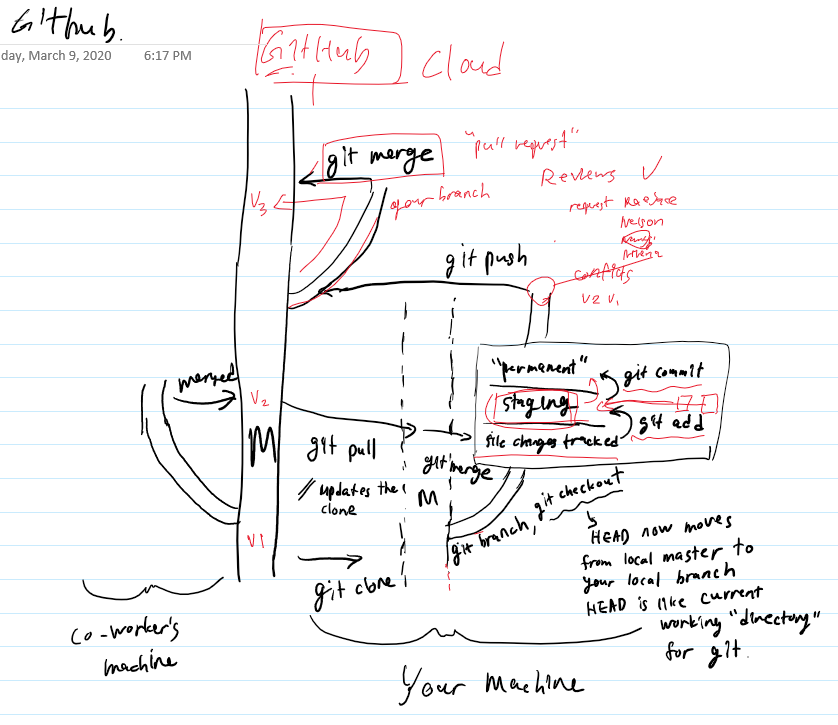 GitHub.
day, March 9, 2020 6:17 PM
GitHub
Cloud
git merge
"pull request"
of our branch
Reviews ✓
request
Nelson
conflicts
V2 V1
V3
git push
"permanent"
git commit
staging
git add
file changes tracked
merged
V2
M
git pull
// updates the
clone
git merge
M
git branch, git checkout
HEAD now moves
from local master to
your local branch
HEAD is like current
working "directory"
for git.
V1
git clone
Co-worker's
machine
Your Machine